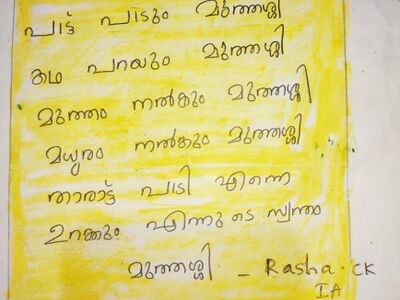 പാട്ട് പാടും മുത്തശ്ശി
കഥ പറയും മുത്തശ്ശി
മുത്തം നൽകും മുത്തശ്ശി
മധുരം നൽകും മുത്തശ്ശി
താരാട്ട് പാടി എന്നെ
ഉറക്കും എന്നുടെ സ്വന്തം
മുത്തശ്ശി - Rasha. CK
IA